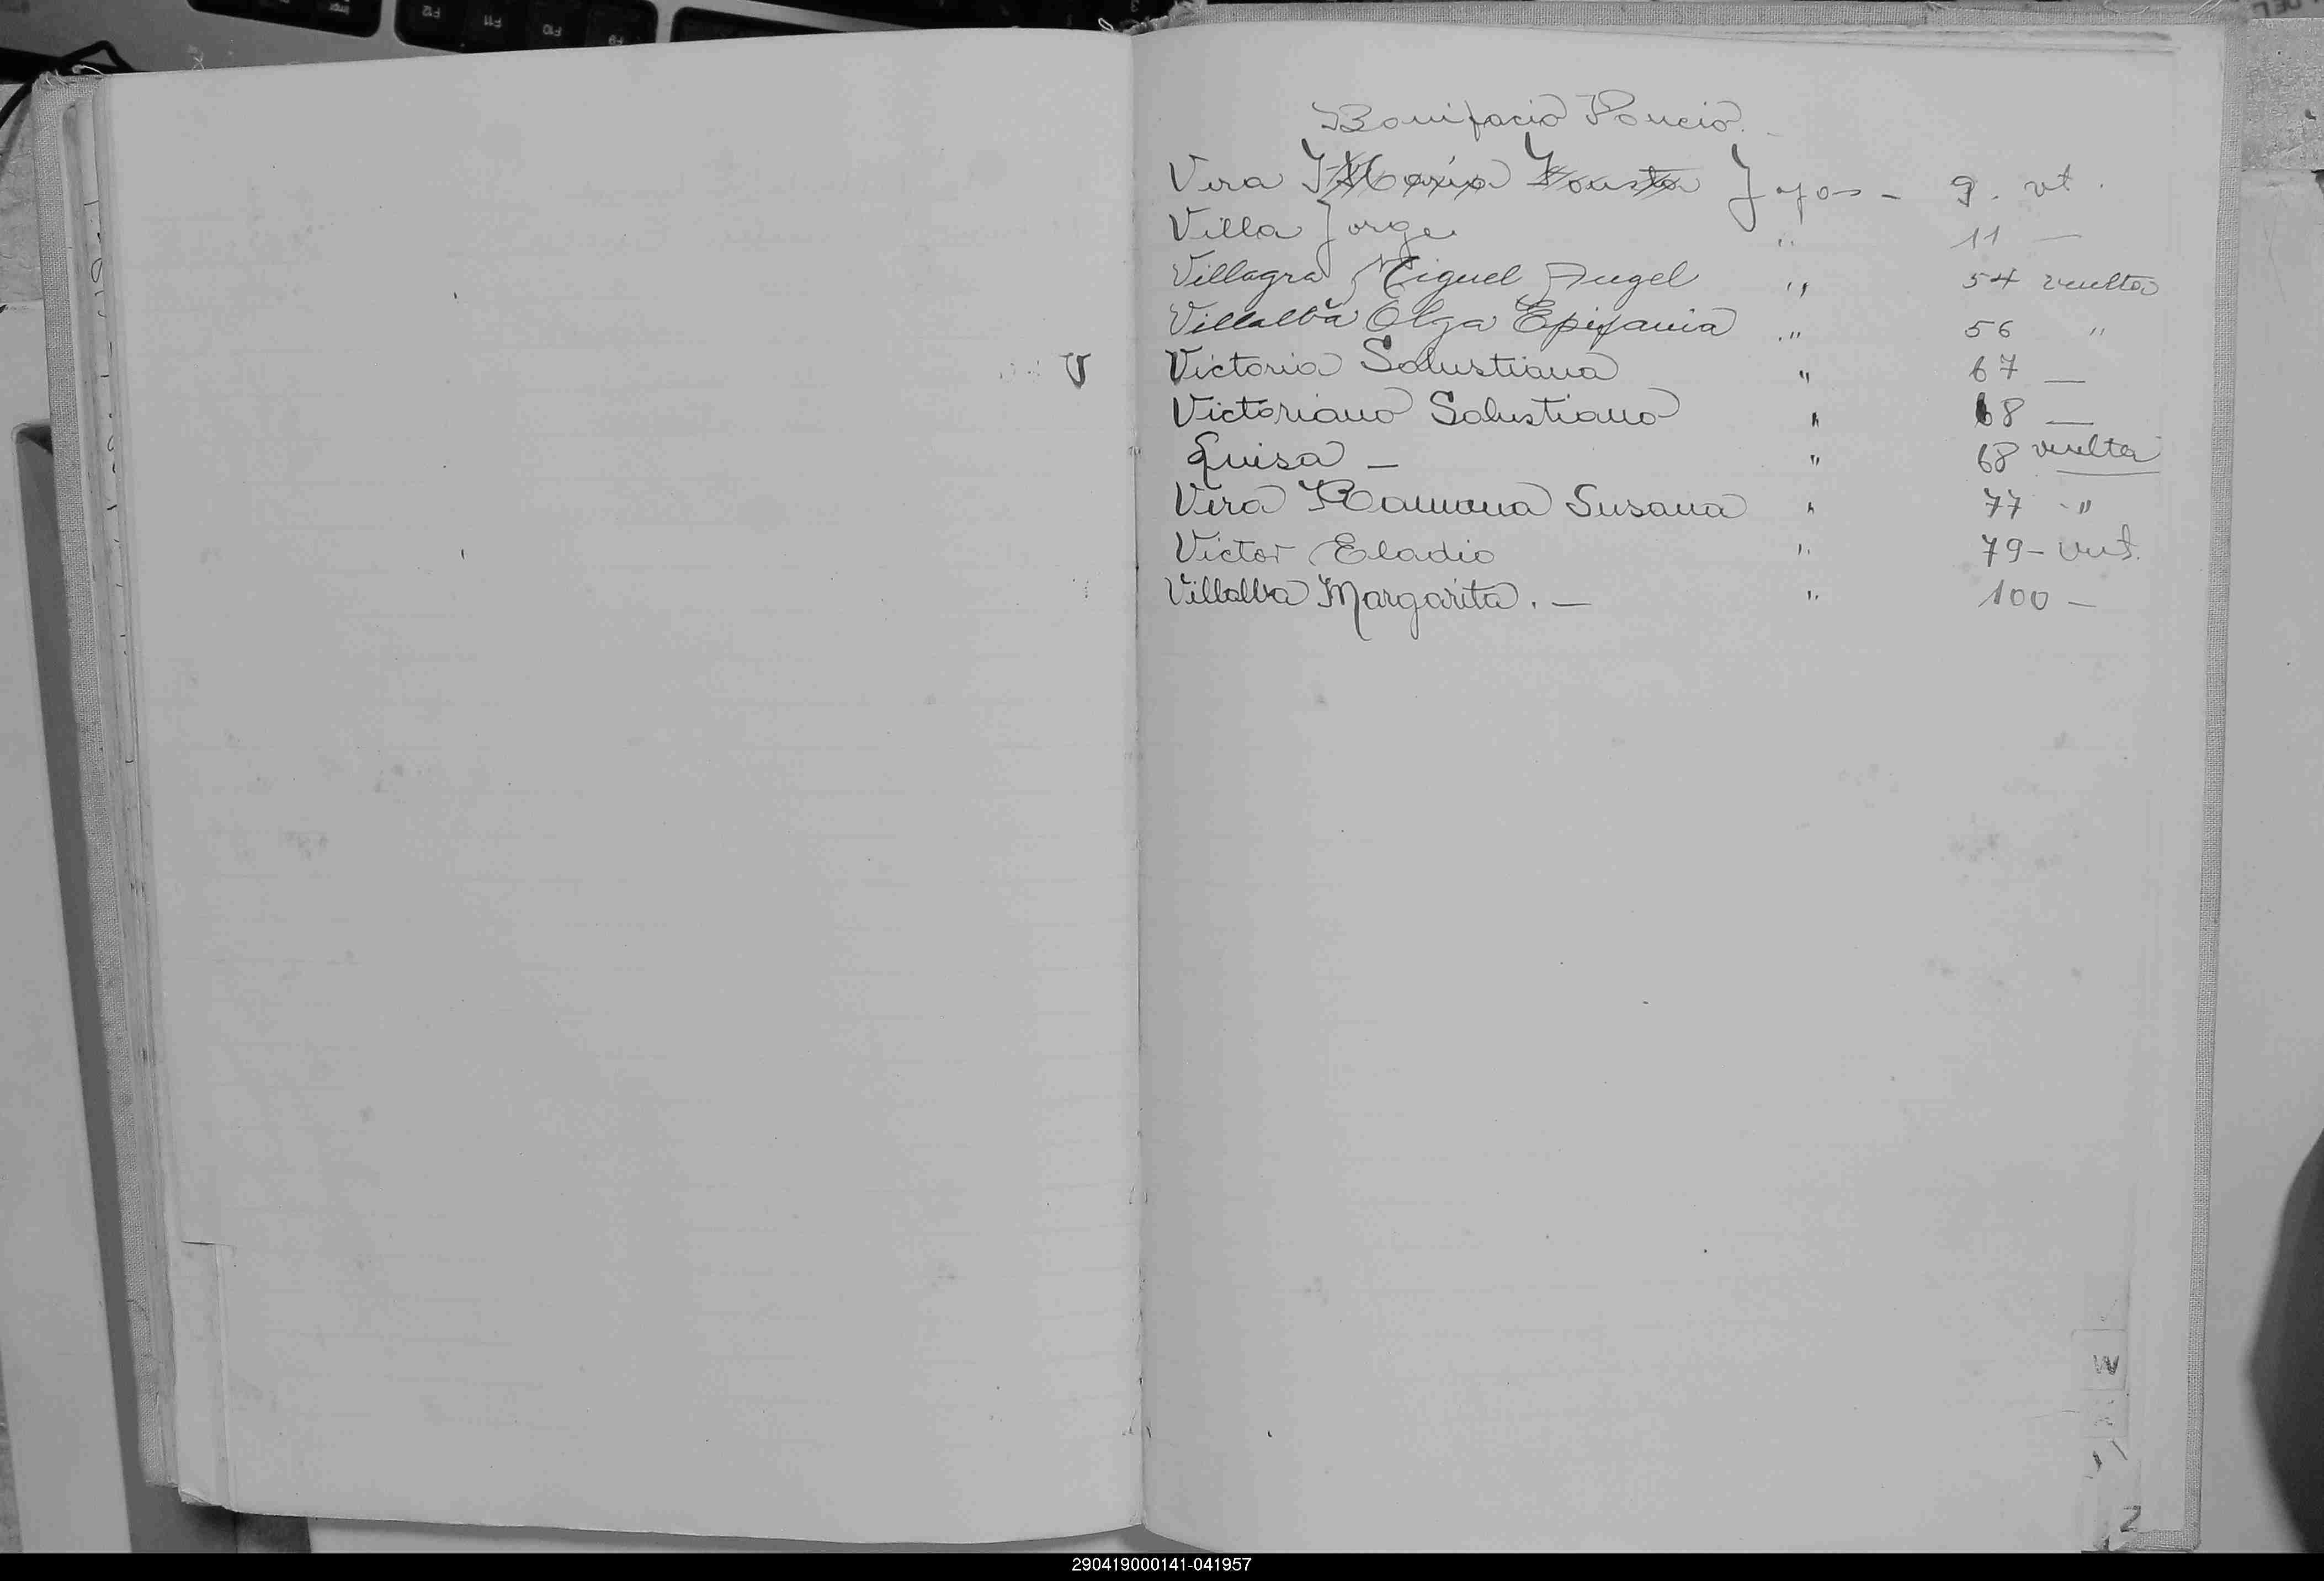 Bonifacio Poncio.
Vera María Fausta Fojas - 9. vt.
Villa Jorge " 11 —
Villagra Miguel Angel " 54 vuelta
Villalba Olga Epifania " 56 "
V
Victoria Salustiana " 67 —
Victoriano Salustiano " 68 —
Luisa — " 68 vuelta
Vera Ramona Susana " 77 "
Victor Eladio " 79 - vuet.
Villalba Margarita. — " 100 —
W
Z
290419000141-041957